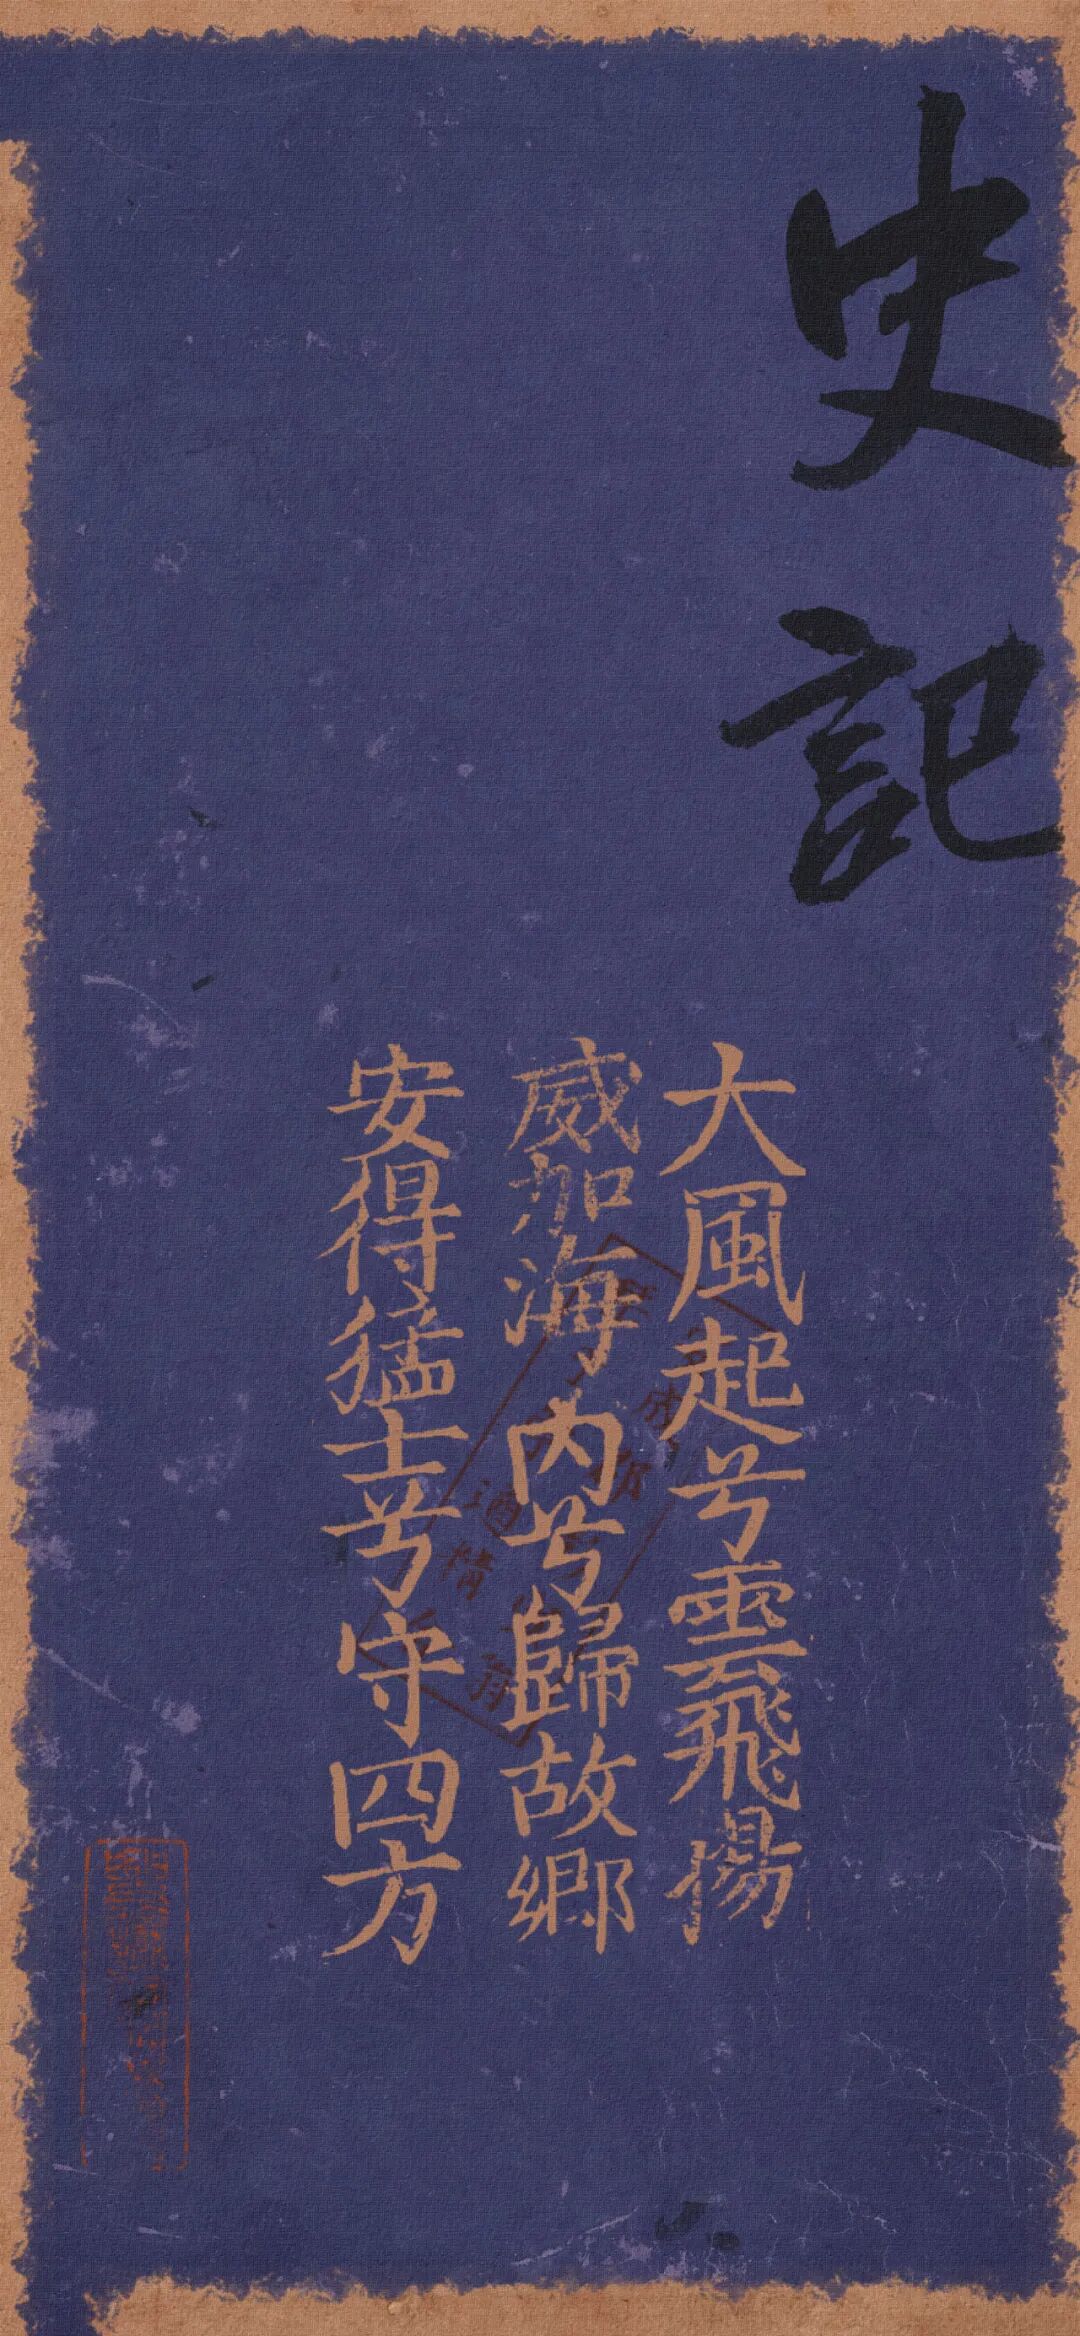 史記
大風起兮雲飛揚
威加海內兮歸故鄉
安得猛士兮守四方